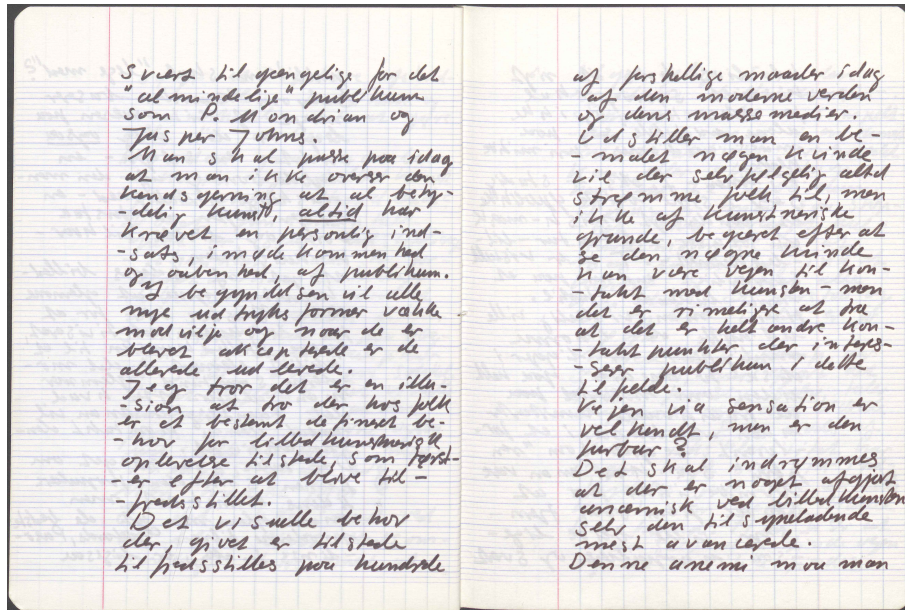 svært tilgængelige for det
"almindelige" publikum
som P. Mondrian og
Jasper Johns.
Man skal passe paa idag
at man ikke overser den
kendsgerning at al bety-
-delig kunst, altid har
krævet en personlig ind-
-sats, imødekommenhed
og aabenhed, af publikum.
I begyndelsen vil alle
nye udtryksformer vække
modvilje og naar de er
blevet akcepterede er de
allerede udlevede.
Jeg tror det er en illu-
-sion at tro der hos folk
er et bestemt defineret be-
-hov for billedkunstnerisk
oplevelse tilstede, som tørst-
-er efter at blive til-
-fredsstillet.
Det visuelle behov
der givet er tilstede
tilfredsstilles paa hundrede
af forskellige maader idag
af den moderne verden
og dens massemedier.
Udstiller man en be-
-malet nøgen kvinde
vil der selvfølgelig altid
strømme folk til, men
ikke af kunstneriske
grunde, begæret efter at
se den nøgne kvinde
kan være vejen til kon-
-takt med kunsten - men
det er rimeligere at tro
at det er helt andre kon-
-taktpunkter der interes-
-serer publikum i dette
tilfælde.
Vejen via sensation er
velkendt, men er den
farbar?
Det skal indrømmes
at der er noget afgjort
anæmisk ved billedkunsten
selv den tilsyneladende
mest avancerede.
Denne anemi maa man